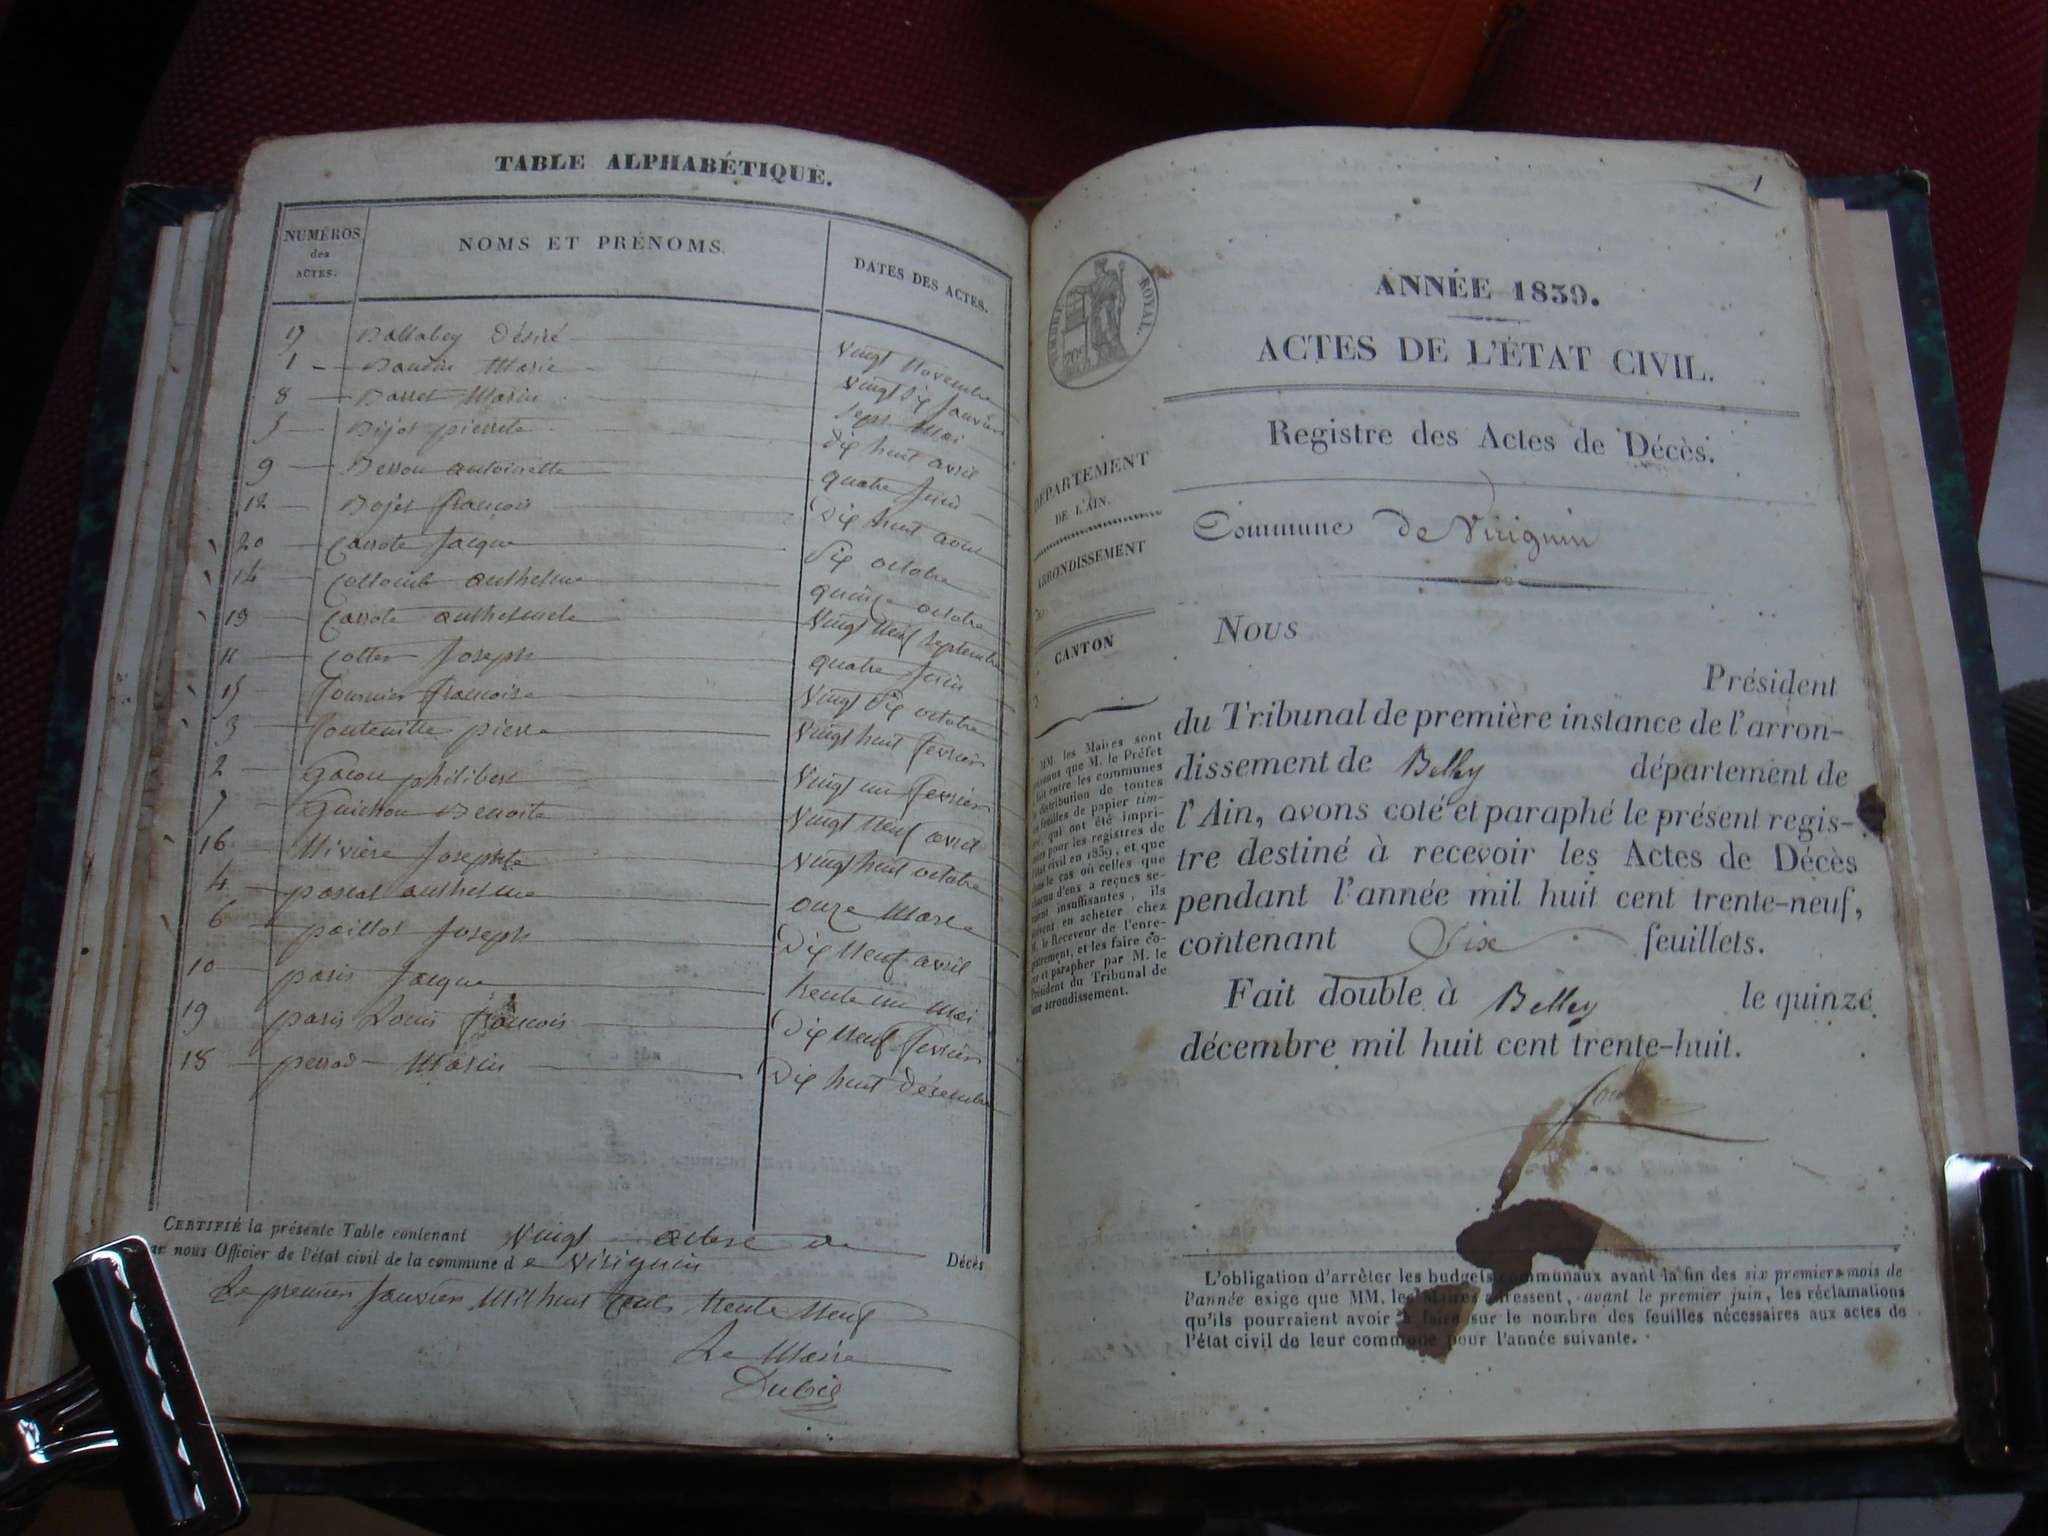 TABLE ALPHABÉTIQUE.
NUMÉROS
des
ACTES.
NOMS ET PRÉNOMS.
DATES DES ACTES.
Désiré vingt Novembre
1 Marie vingt Six Janvier
8 Marin Sept Mai
5 pierrete dix huit avril
9 antoinette quatre Juin
12 françois Dix huit aout
20 Carrote Jacque Six octobre
14 Collomb anthelme quinze octobre
13 Carrote anthelmete Vingt Neuf Septembre
11 Cottin Joseph quatre Juin
15 fournier francoise Vingt Six octobre
3 fontenille pierre Vingt huit fevrier
2 Gacon philibert Vingt un fevrier
7 Guichon Benoite Vingt Neuf avril
16 Nivière Josephte vingt huit octobre
4 pascal anthelme onze Mars
6 paillot Joseph Dix Neuf avril
10 paris Jacque trente un Mai
19 paris Louis francois Dix Neuf fevrier
18 perrod Marin Dix huit Désembre
CERTIFIÉ la présente Table contenant Vingt actes de Décès
par nous Officier de l'état civil de la commune d e Virignin
Le premier Janvier Mil huit Cents trente Neuf
Le Maire
Dubis
1
TIMBRE ROYAL.
70c
ANNÉE 1839.
ACTES DE L'ÉTAT CIVIL.
Registre des Actes de Décès.
DÉPARTEMENT
DE L'AIN.
ARRONDISSEMENT
CANTON
MM. les Maires sont
que M. le Préfet
fait entre les communes
distribution de toutes
feuilles de papier tim-
qui ont été impri-
pour les registres de
civil en 1839, et que
dans le cas où celles que
chacun d'eux a reçues se-
raient insuffisantes, ils
doivent en acheter chez
M. le Receveur de l'enre-
gistrement, et les faire co-
ter et parapher par M. le
Président du Tribunal de
arrondissement.
Commune de Virignin
Nous
Président
du Tribunal de première instance de l'arron-
dissement de Belley département de
l'Ain, avons coté et paraphé le présent regis-
tre destiné à recevoir les Actes de Décès
pendant l'année mil huit cent trente-neuf,
contenant Six feuillets.
Fait double à Belley le quinze
décembre mil huit cent trente-huit.
L'obligation d'arrêter les budgets communaux avant la fin des six premiers mois de
l'année exige que MM. les Maires adressent, avant le premier juin, les réclamations
qu'ils pourraient avoir à faire sur le nombre des feuilles nécessaires aux actes de
l'état civil de leur commune pour l'année suivante.